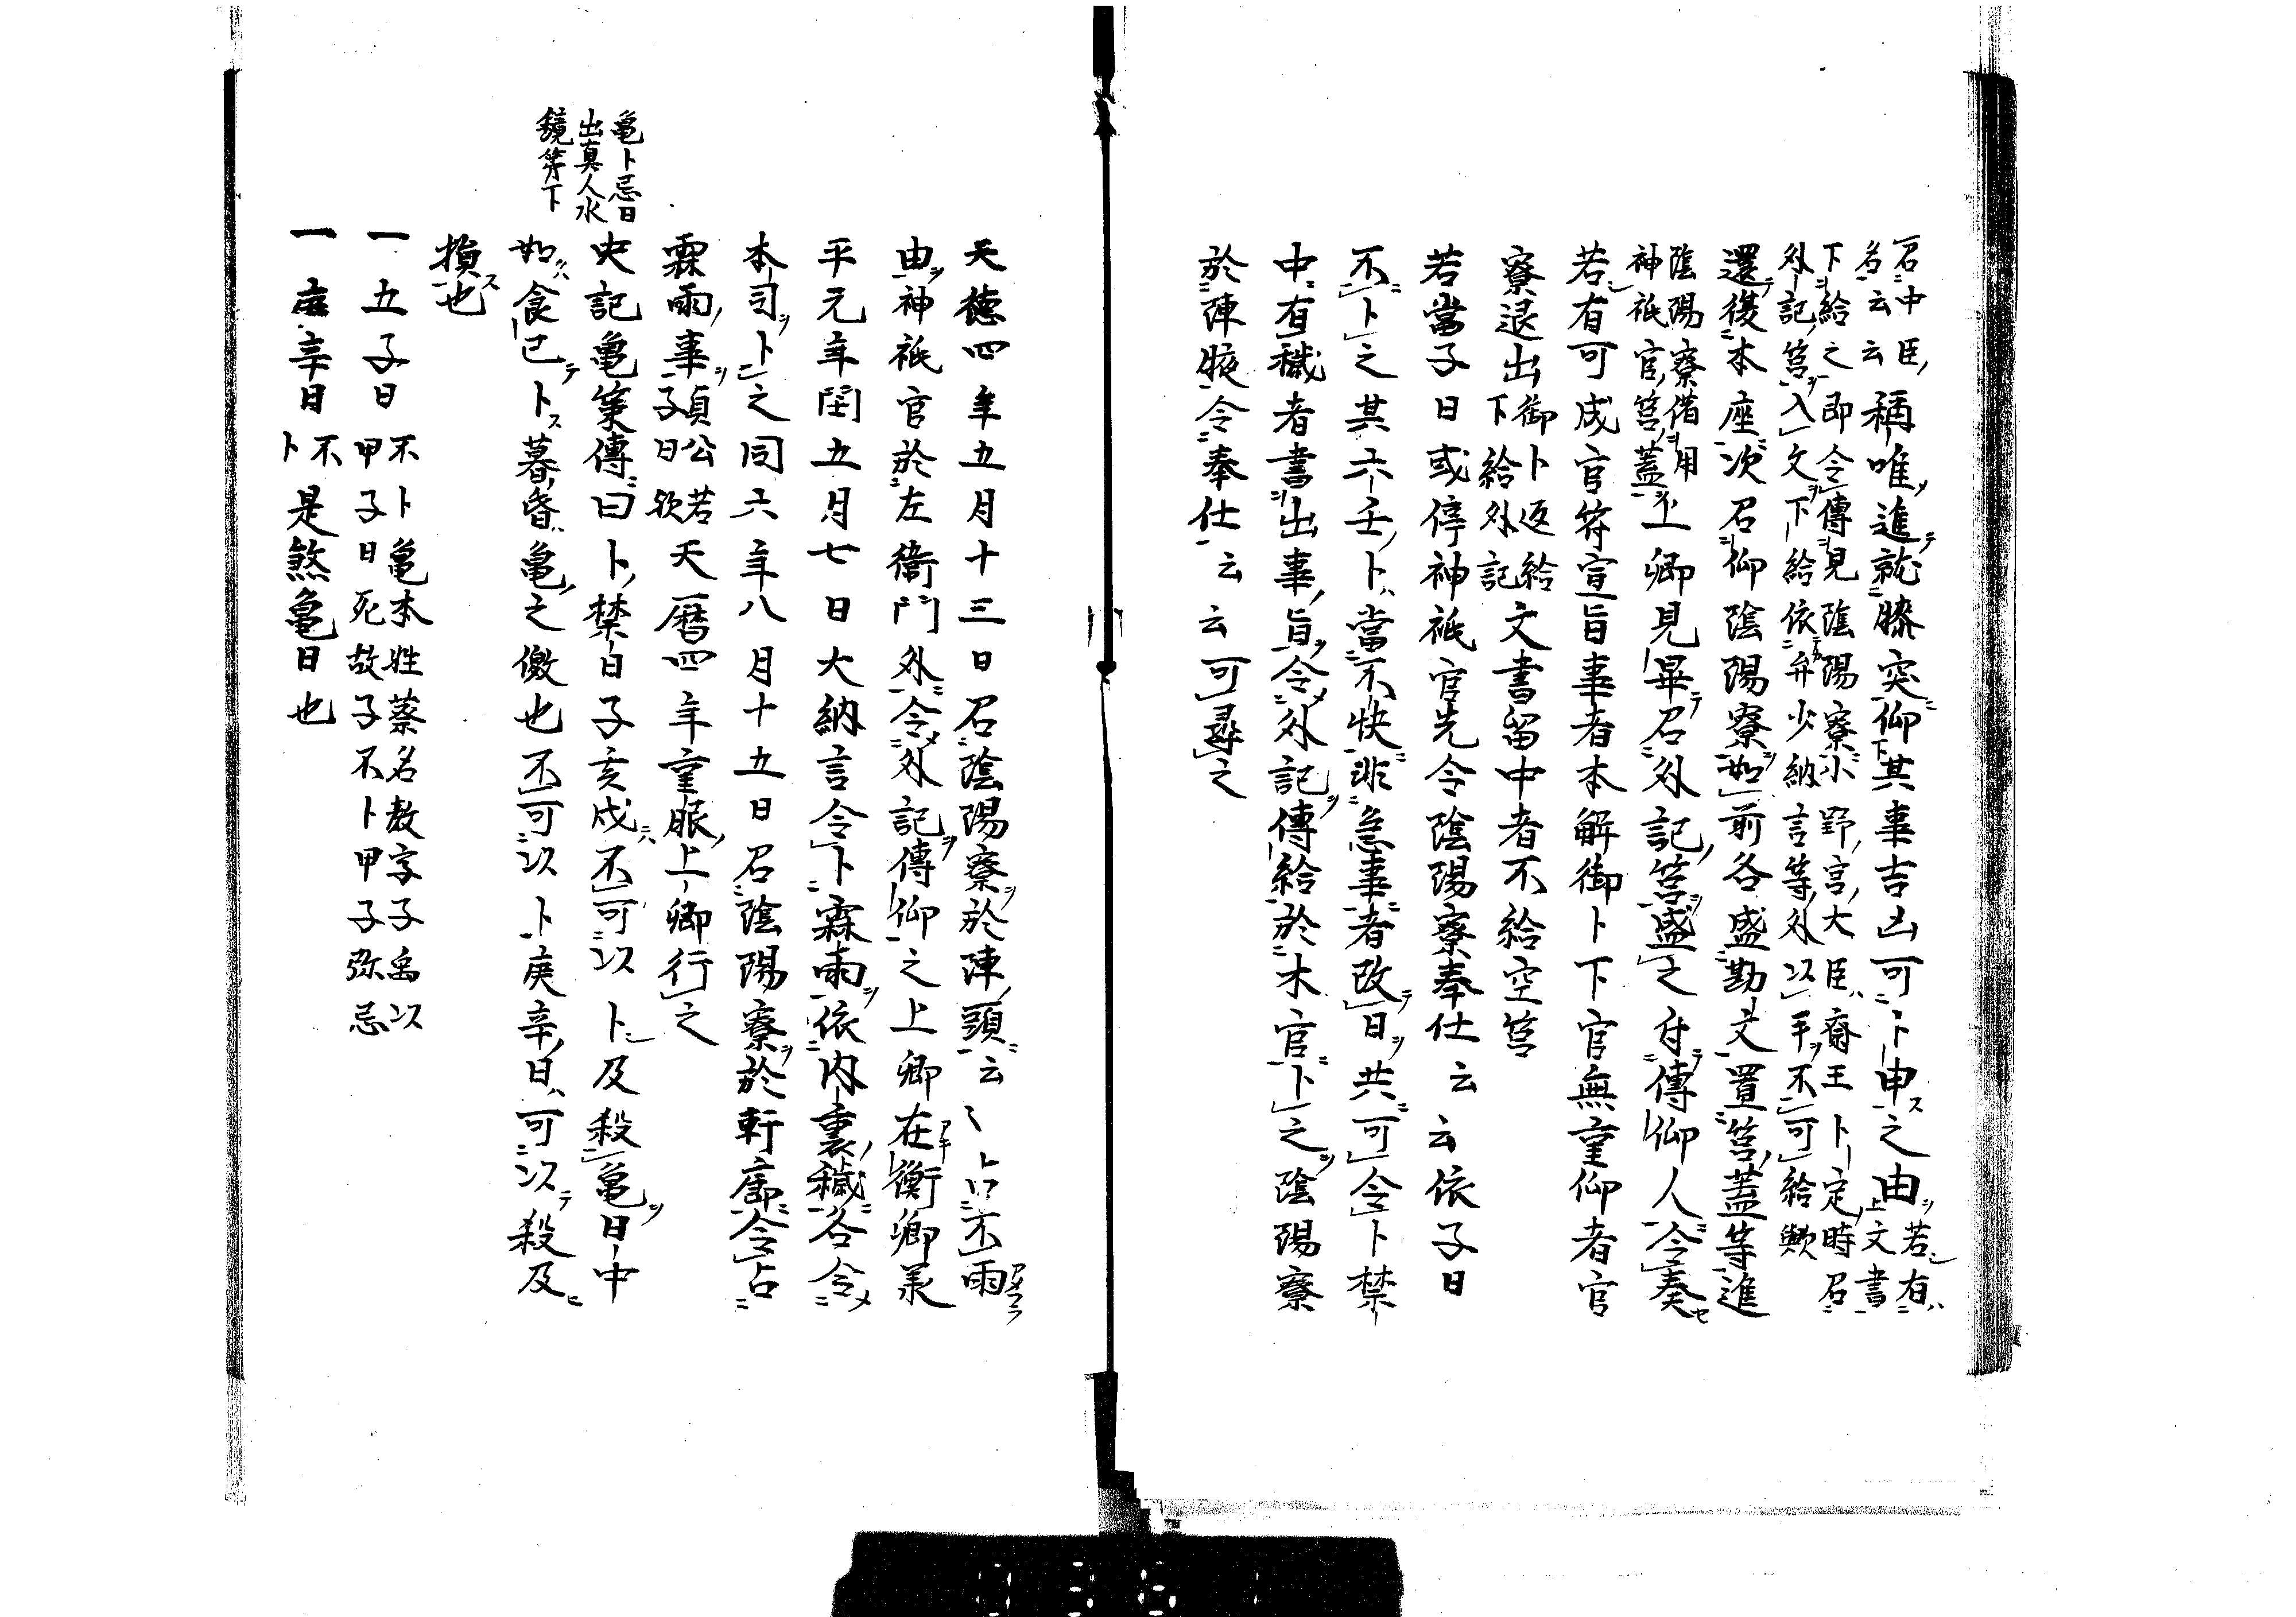 召中臣
名云云
稱唯進就膝突仰其事吉凶可卜申之由
若有
上文書
下給之即令傳見陰陽寮小野宮大臣齋王卜定時召
外記筥入文下給依弁少納言等外以手不可給歟
還復本座次召仰陰陽寮如前各盛勘文置筥蓋等進
陰陽寮借用
神祇官筥蓋
上卿見畢召外記筥盛之付傳仰人令奏
若有可成官符宣旨事者本解御卜下官無重仰者官
寮退出
御卜返給
下給外記
文書留中者不給空筥
若當子日或停神祇官先令陰陽寮奉仕云云依子日
不卜之其六壬卜當不快非急事者改日共可令卜禁
中有穢者書出事旨令外記傳給於本官卜之陰陽寮
於陣腋令奉仕云云可尋之
天德四年五月十三日召陰陽寮於陣頭云〻占不雨
由神祇官於左衛門外令外記傳仰之上卿在衡卿美
平元年閏五月七日大納言令卜霖雨依内裏穢各令
本司卜之同六年八月十五日召陰陽寮於軒廊令占
霖雨事
貞公若
子日欤
天曆四年重服上卿行之
龜卜忌日
出真人水
鏡第下
史記龜策傳曰卜禁日子亥戌不可以卜及殺龜日中
如食已卜暮昏龜之徼也不可以卜庚辛日可以殺及
損也
一五子日
不卜龜本姓蔡名敖字子禹以
甲子日死故子不卜甲子弥忌
一庚辛日
不
卜
是煞龜日也